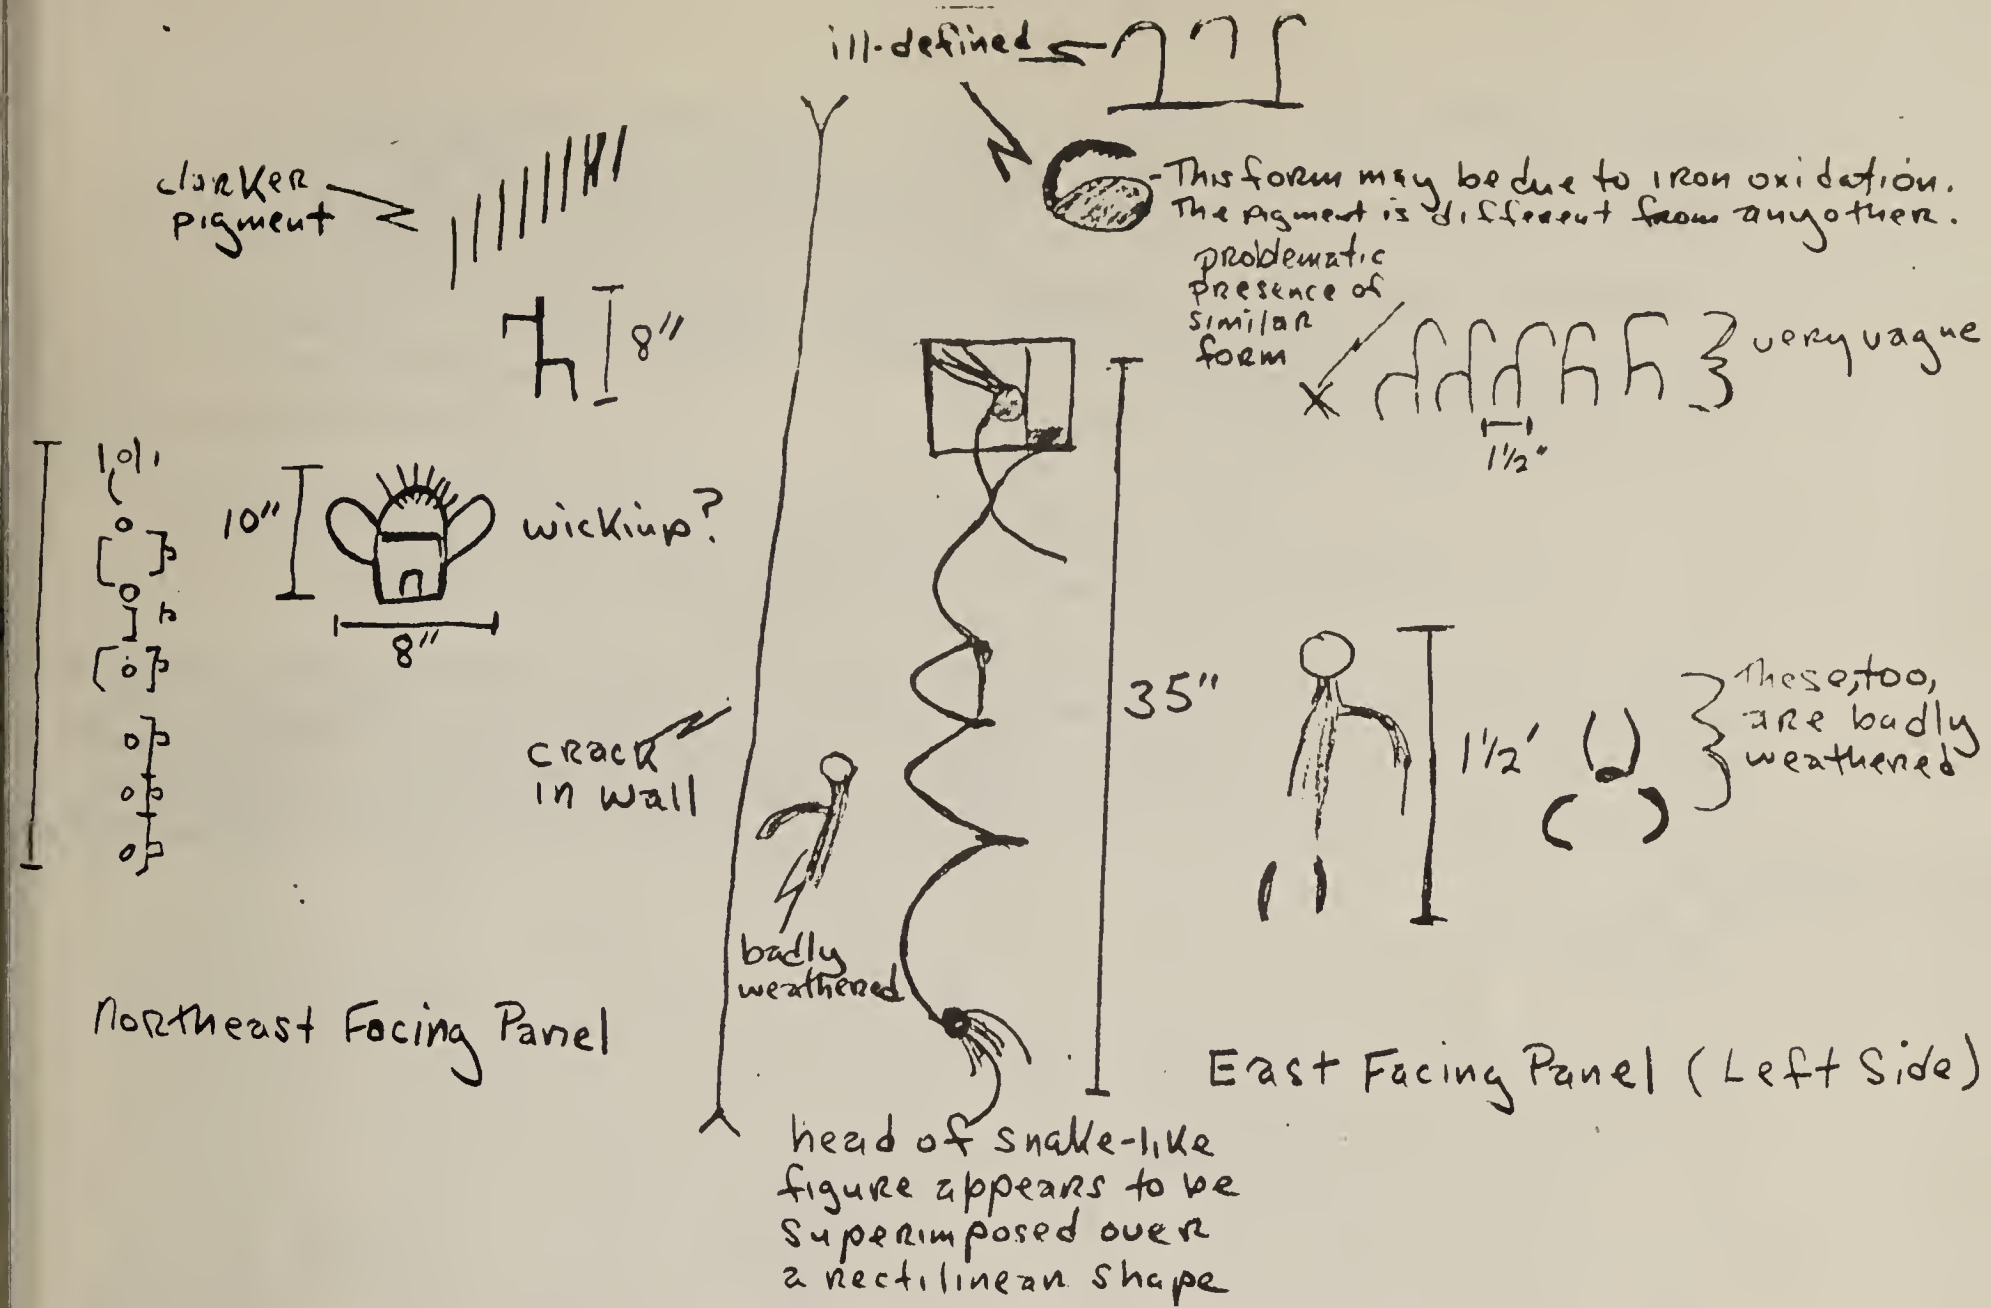 ill-defined
darker
pigment
This form may be due to iron oxidation.
The pigment is different from any other.
problematic
presence of
similar
form
very vague
8"
1½"
10"
wickiup?
8"
35"
1½'
These, too,
are badly
weathered
crack
in wall
badly
weathered
Northeast Facing Panel
East Facing Panel (Left Side)
head of snake-like
figure appears to be
superimposed over
a rectilinear shape